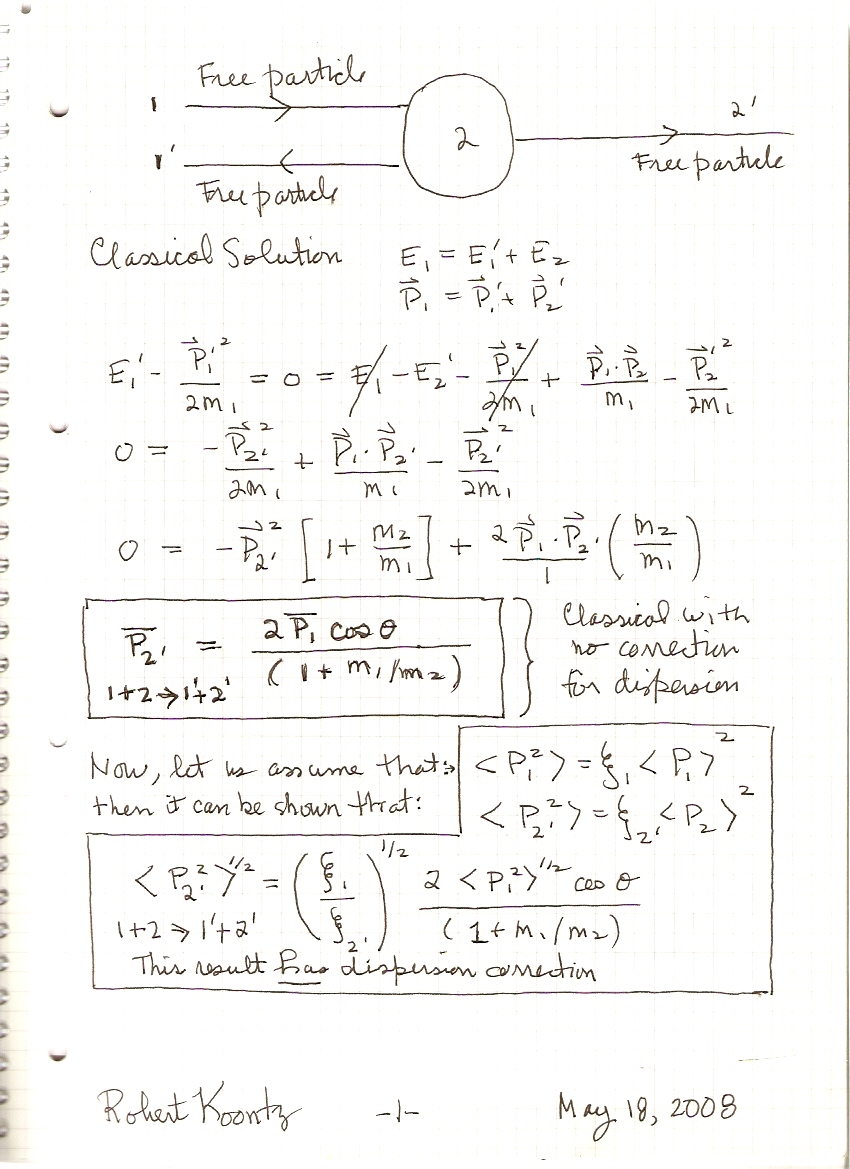 Free particle
1
2
2'
1'
Free particle
Free particle
Classical Solution E₁ = E₁' + E₂
P⃗₁ = P⃗₁' + P⃗₂'
E₁' - P⃗₁'²/2m₁ = 0 = E₁ - E₂' - P⃗₁²/2m₁ + P⃗₁·P⃗₂/m₁ - P⃗₂'²/2m₁
0 = -P⃗₂'²/2m₁ + P⃗₁·P⃗₂'/m₁ - P⃗₂'²/2m₁
0 = -P⃗₂'² [1 + m₂/m₁] + 2P⃗₁·P⃗₂'/1 (m₂/m₁)
P̄₂' = 2P̄₁ cos θ / (1 + m₁/m₂)
1+2→1'+2'
Classical with
no correction
for dispersion
Now, let us assume that:
then it can be shown that:
<P₁²> = ξ₁ <P₁>²
<P₂'²> = ξ₂' <P₂>²
<P₂'²>^1/2 = (ξ₁/ξ₂')^1/2 2 <P₁²>^1/2 cos θ / (1 + m₁/m₂)
1+2→1'+2'
This result has dispersion correction
Robert Koontz -1- May 18, 2008